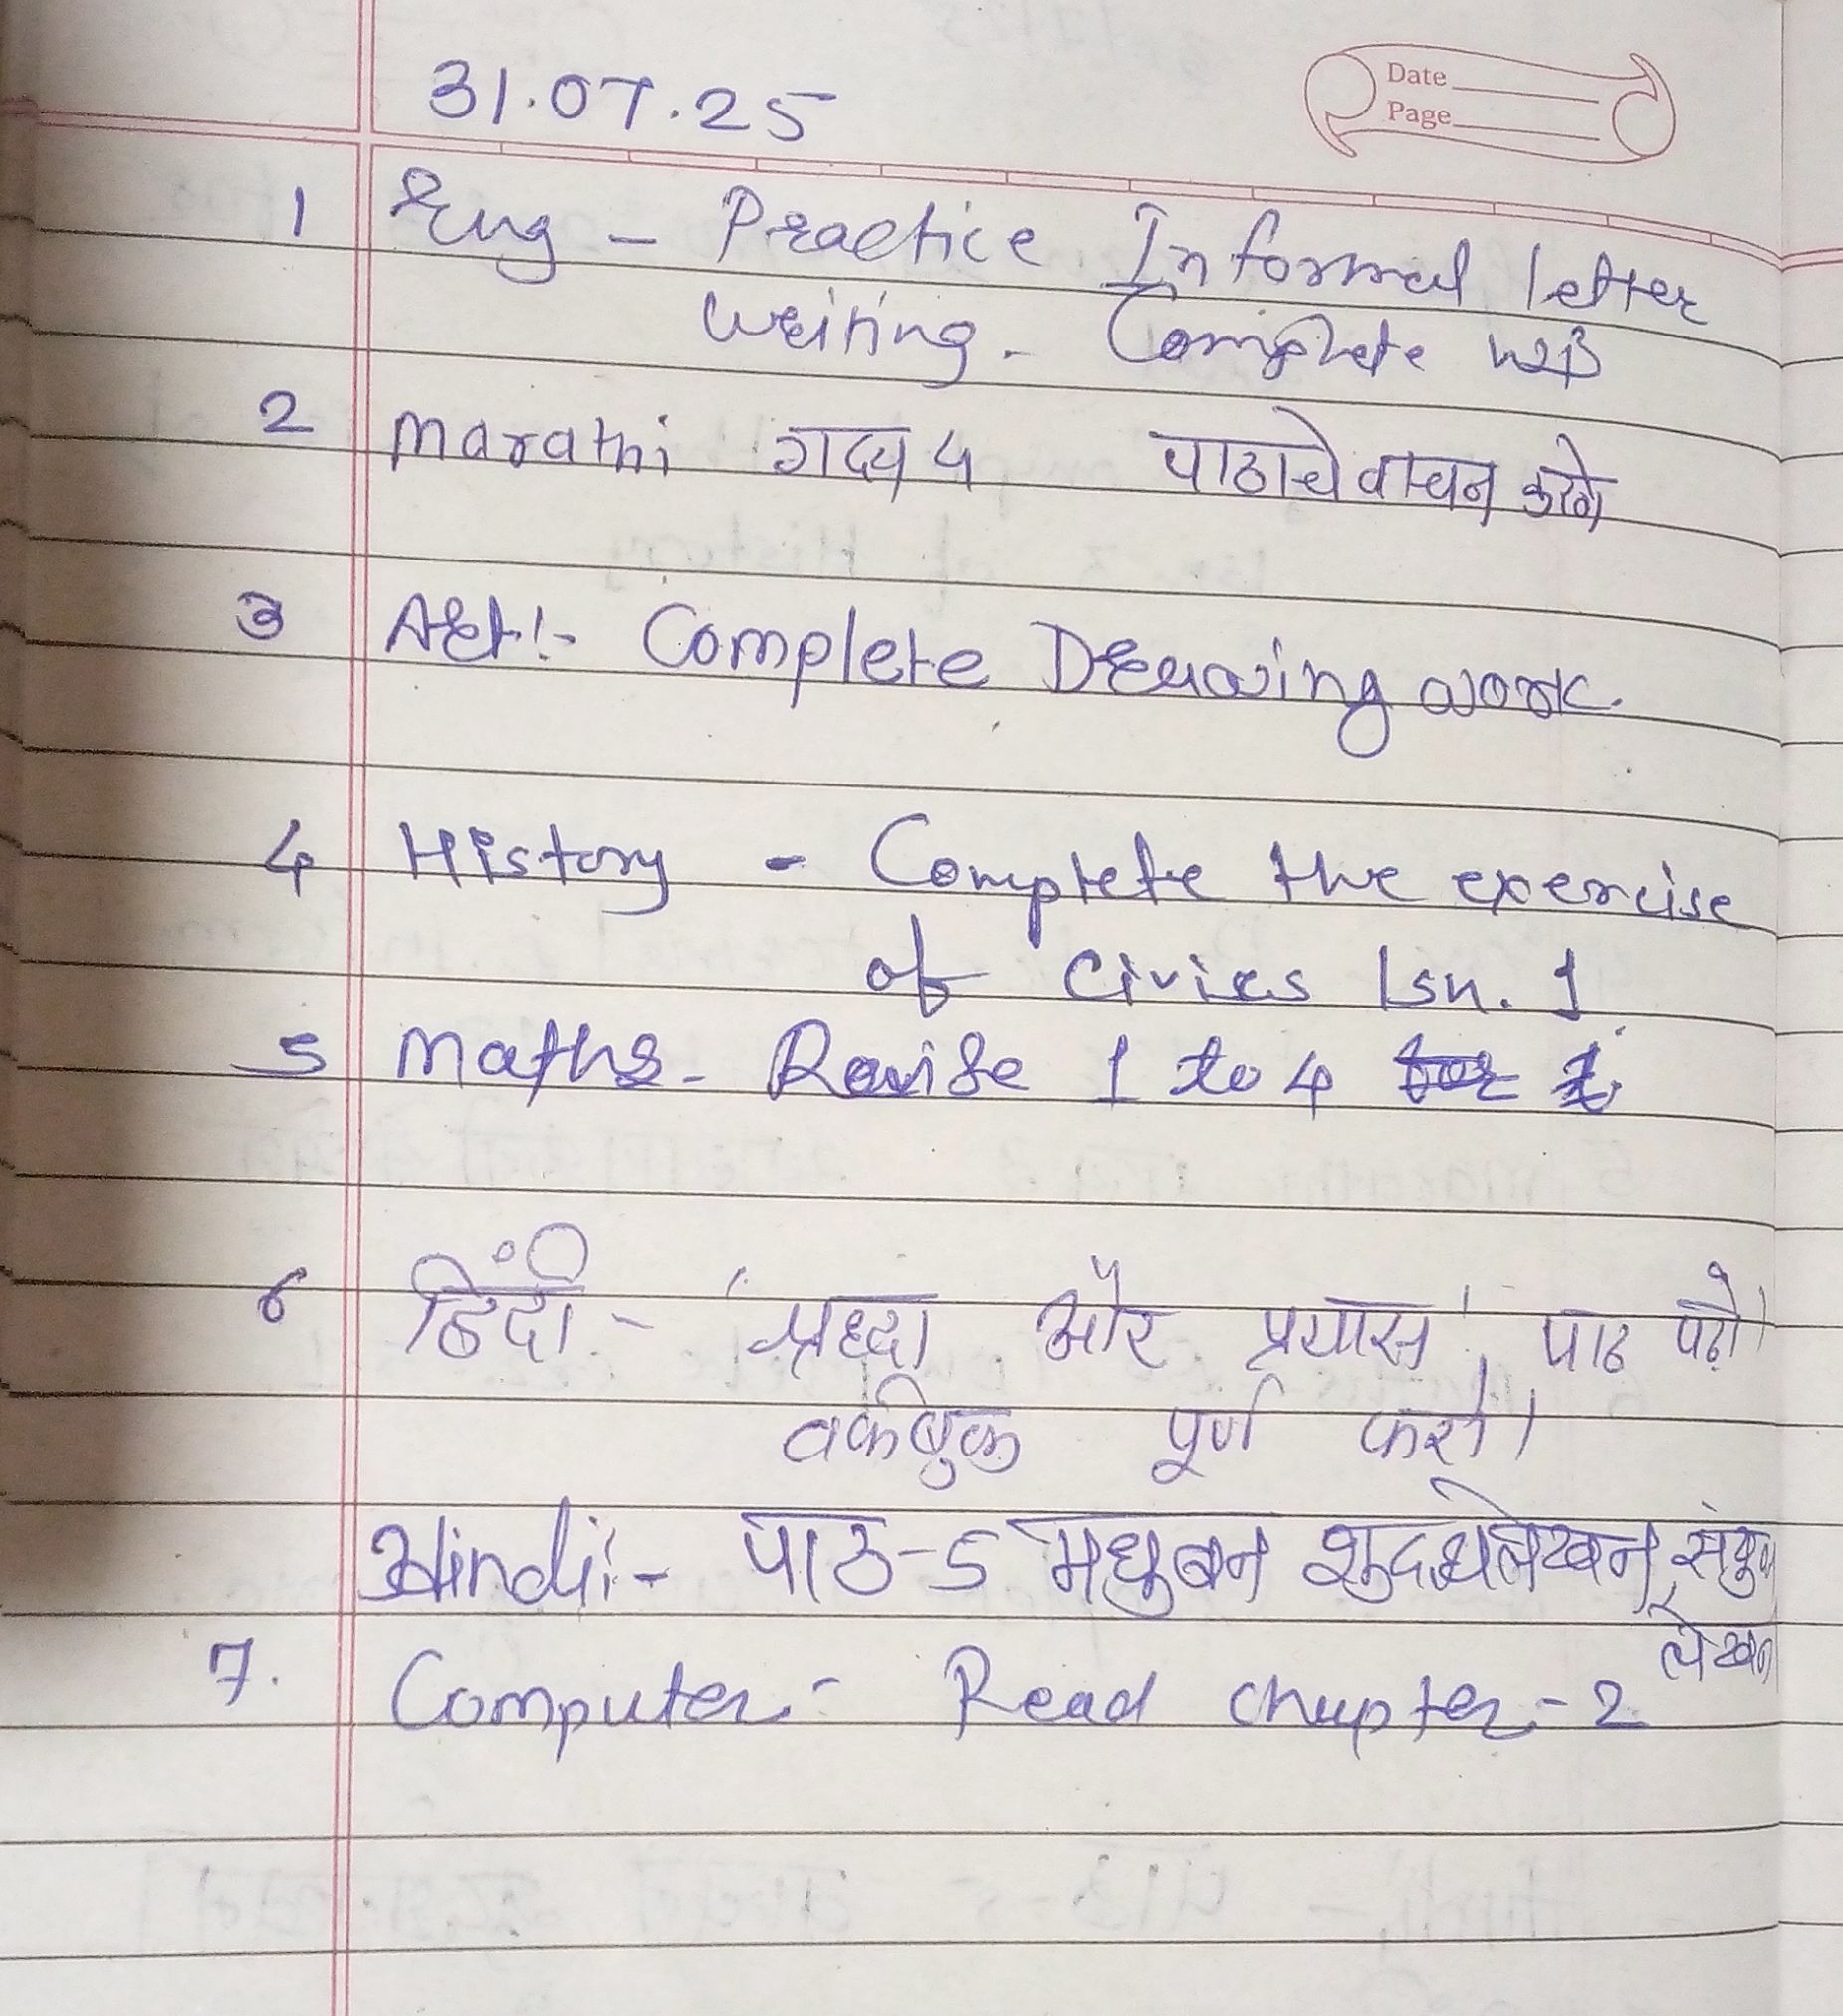 31.07.25
Date
Page
1 Eng - Practice Informal letter
writing. Complete WB
2 Marathi गद्य 4 पाठाचे वाचन करणे
3 Art:- Complete Drawing work.
4 History - Complete the exercise
of Civics lsn. 1
5 Maths - Revise 1 to 4
6 हिंदी - 'श्रद्धा और प्रयास' पाठ पढ़ो।
वर्कबुक पूर्ण करो।
Hindi:- पाठ-5 मधुबन शुद्धलेखन,
लेखन
7. Computer:- Read chapter-2